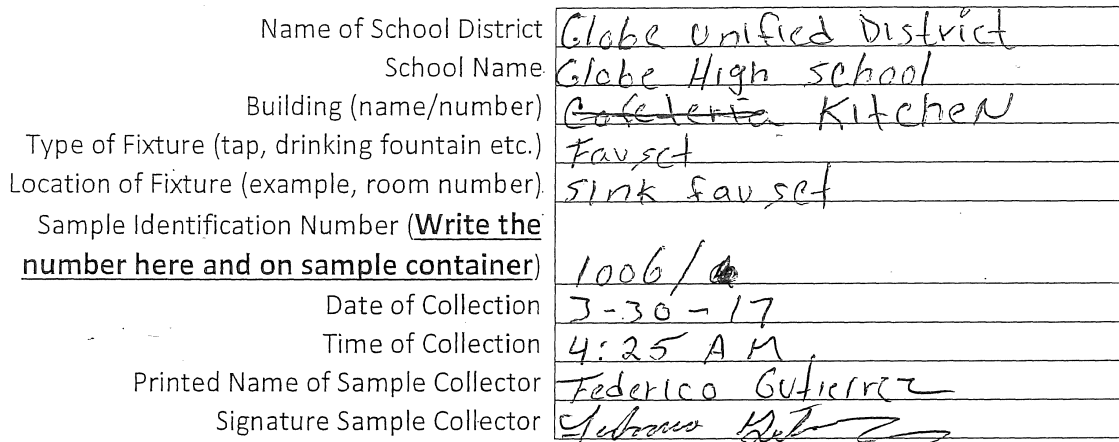 Name of School District Globe Unified District
School Name Globe High school
Building (name/number) Cafeteria Kitchen
Type of Fixture (tap, drinking fountain etc.) Fauset
Location of Fixture (example, room number) sink fauset
Sample Identification Number (Write the
number here and on sample container) 1006/
Date of Collection 3-30-17
Time of Collection 4:25 AM
Printed Name of Sample Collector Federico Gutierrez
Signature Sample Collector